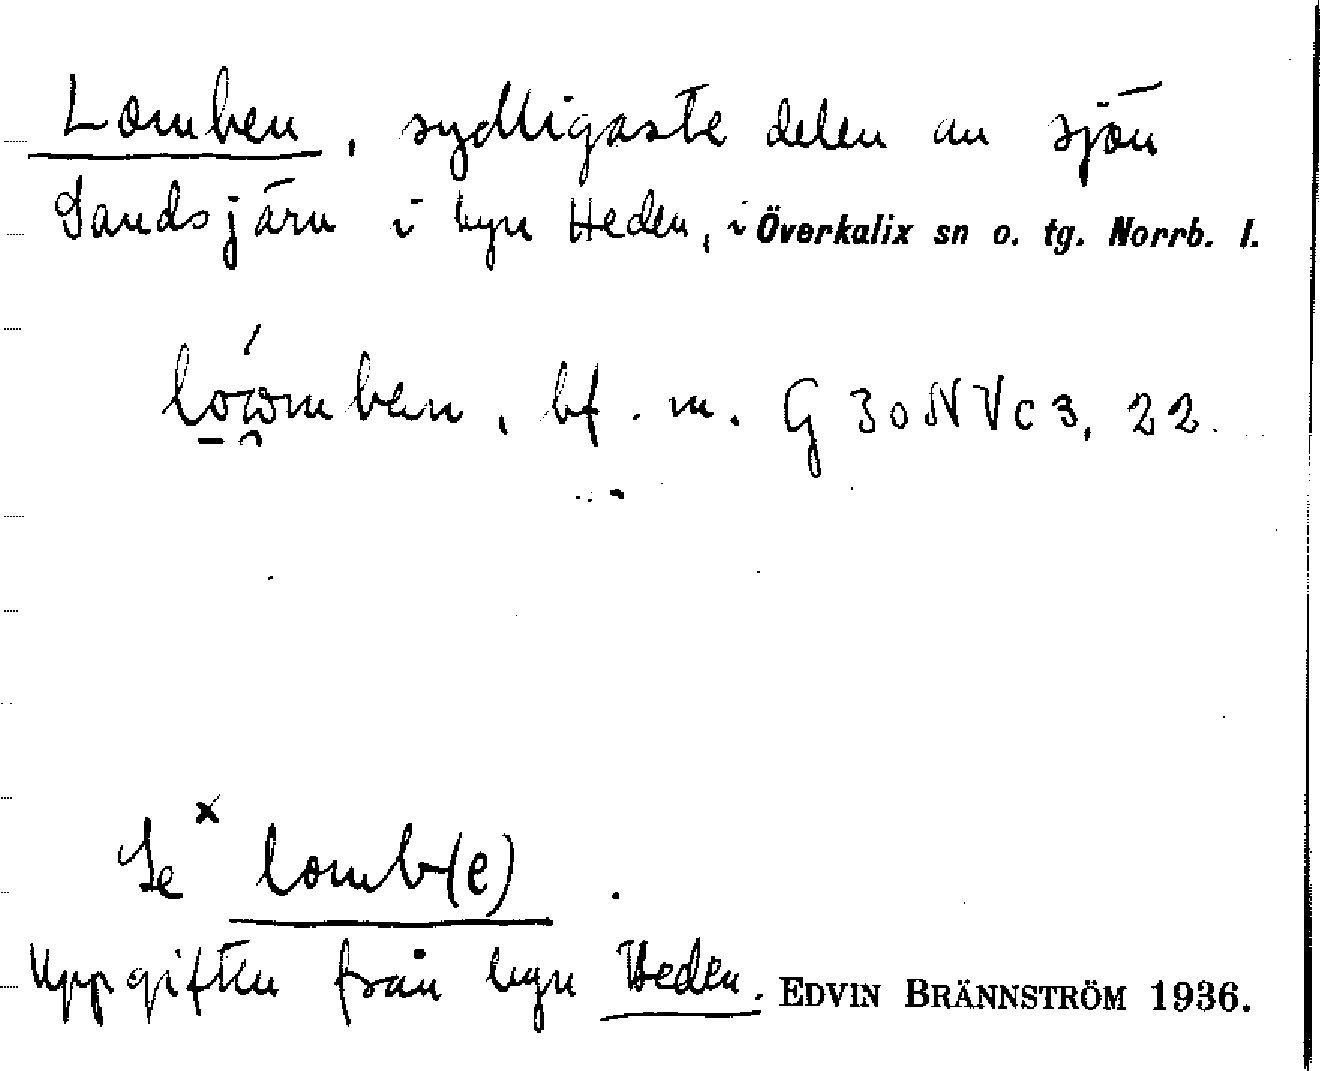 Lomben, sydligaste delen av sjön
Sandsjärn i byn Heden, i Överkalix sn o. tg. Norrb. l.
bf. m. G 30 NV c 3, 22.
Se × lomb(e)
Uppgiften från byn Heden. EDVIN BRÄNNSTRÖM 1936.